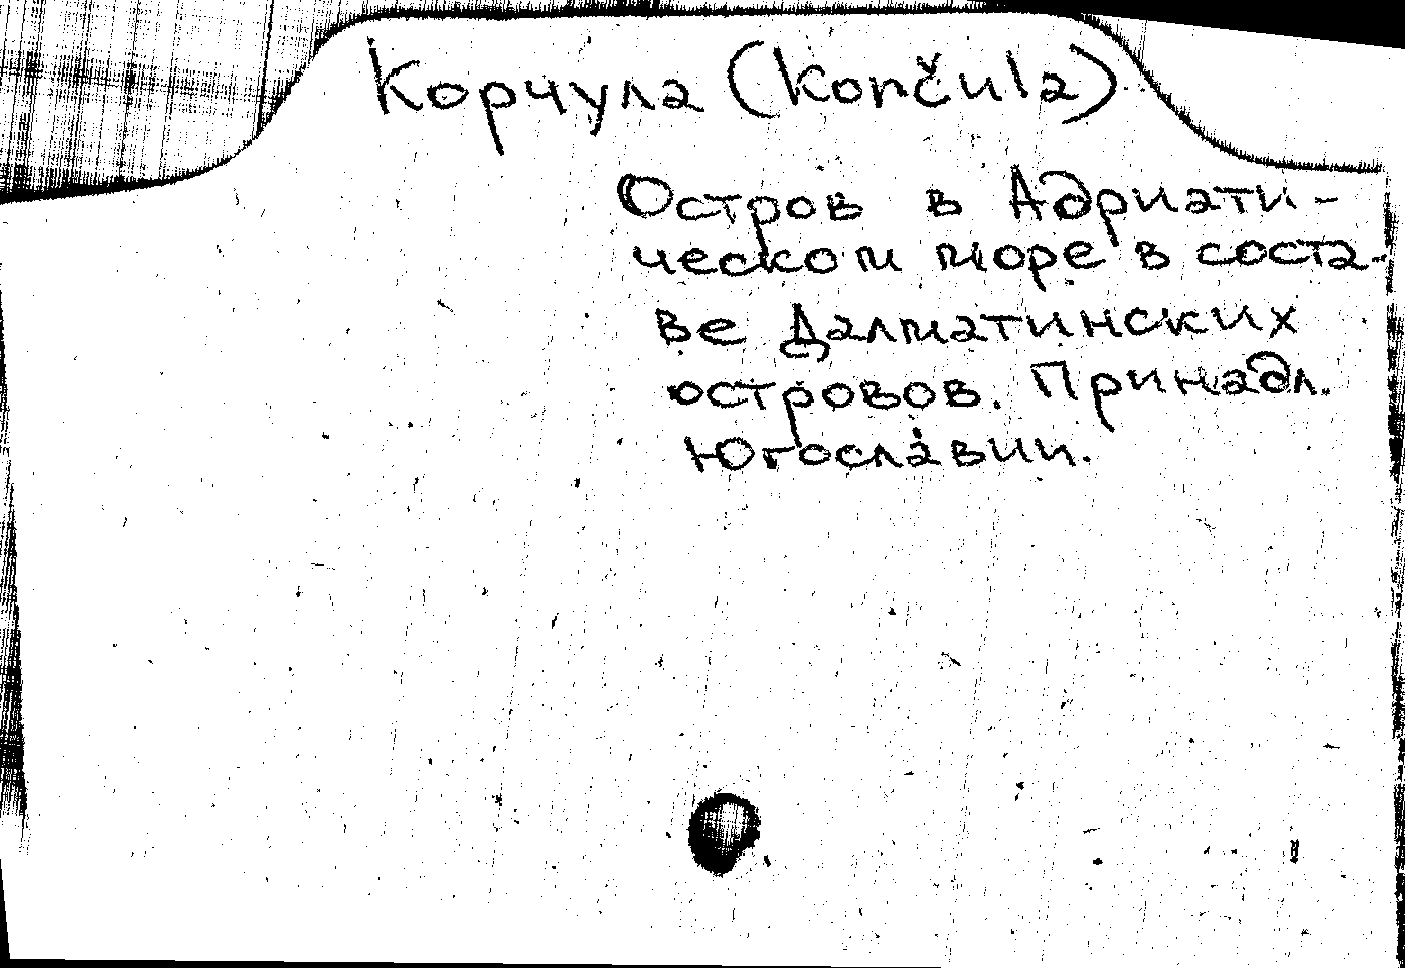 Корчула (Korčula)
Остров в Адриати-
ческом море в соста-
ве Далматинских
островов. Принадл.
Югославии.